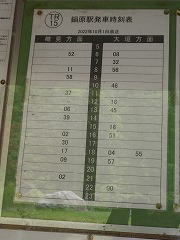 TR
15
鍋原駅発車時刻表
2022年10月1日改正
樽見方面 大垣方面
5
52 6 08
7 32
11 8 56
58 9
10 46
37 11
12 16
06 13 45
39 14
15 16
02 16 51
30 17
17 18 04 55
09 19 57
20
02 21
22 00
23